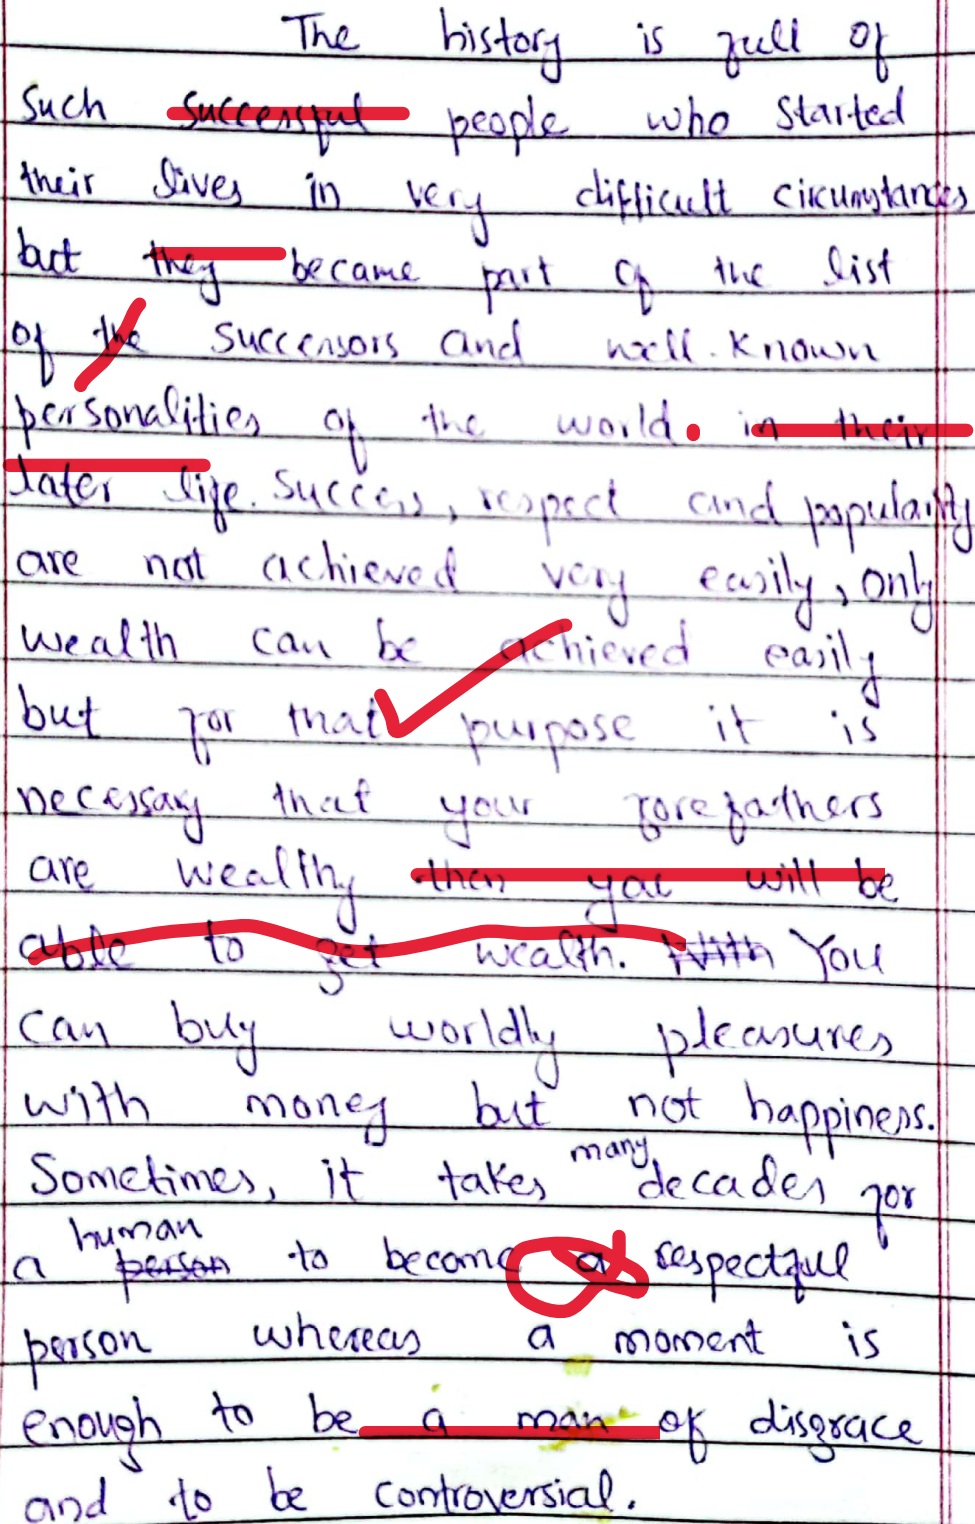 The history is full of
such successful people who started
their lives in very difficult circumstances
but they became part of the list
of the successors and well-known
personalities of the world. in their
later life. Success, respect and popularity
are not achieved very easily, only
wealth can be achieved easily
but for that purpose it is
necessary that your forefathers
are wealthy then you will be
able to get wealth. With You
can buy worldly pleasures
with money but not happiness.
Sometimes, it takes many decades for
a person human to become a respectful
person whereas a moment is
enough to be a man of disgrace
and to be controversial.